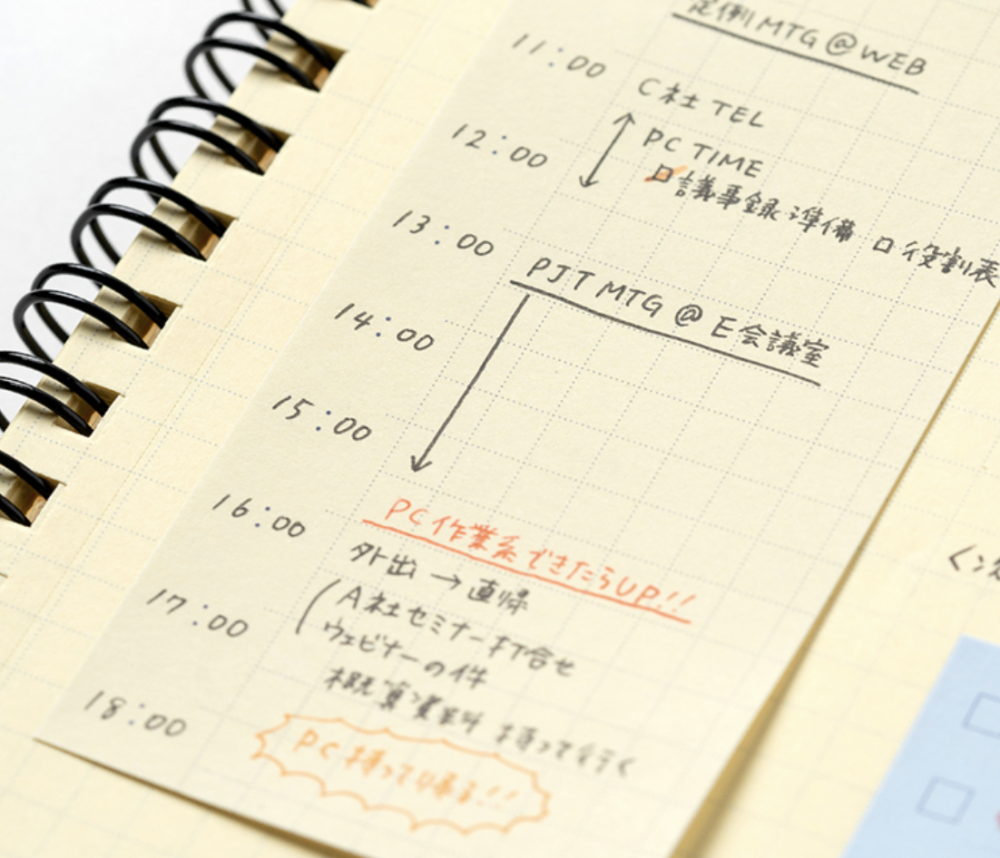 定例MTG@WEB
11:00
C社 TEL
12:00
PC TIME
議事録準備 役割表
13:00
PJT MTG @ E会議室
14:00
15:00
16:00
PC作業系できたらUP!!
外出 → 直帰
17:00
A社セミナー打合せ
ウェビナーの件
概算資料 持って行く
18:00
PC持って帰る!!